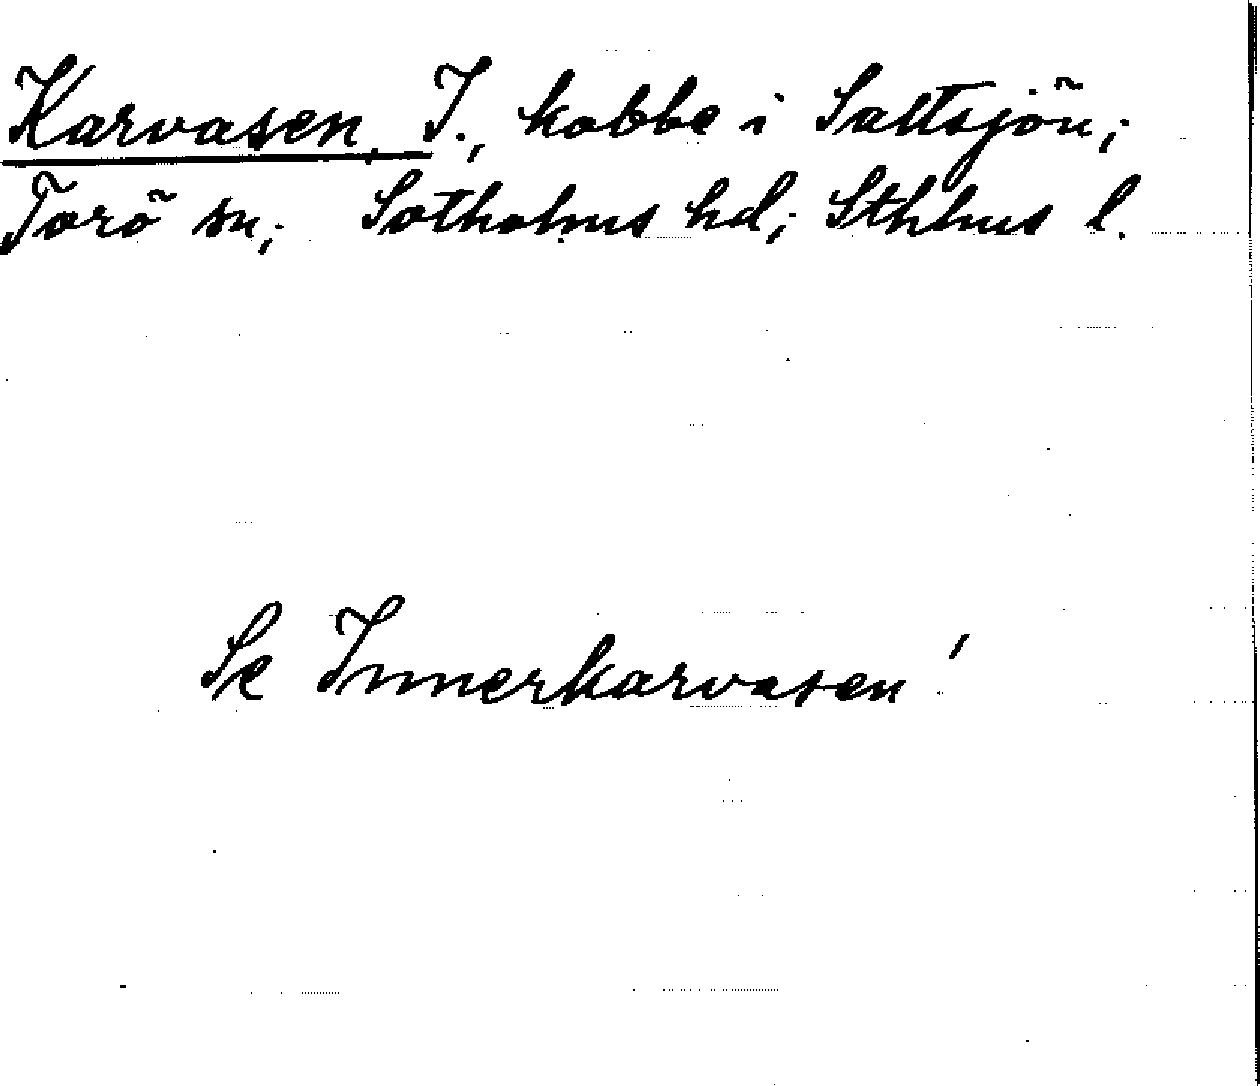 Karvasen, I., kobbe i Saltsjön;
Torö sn; Sotholms hd; Sthlms l.
Se Innerkarvasen!